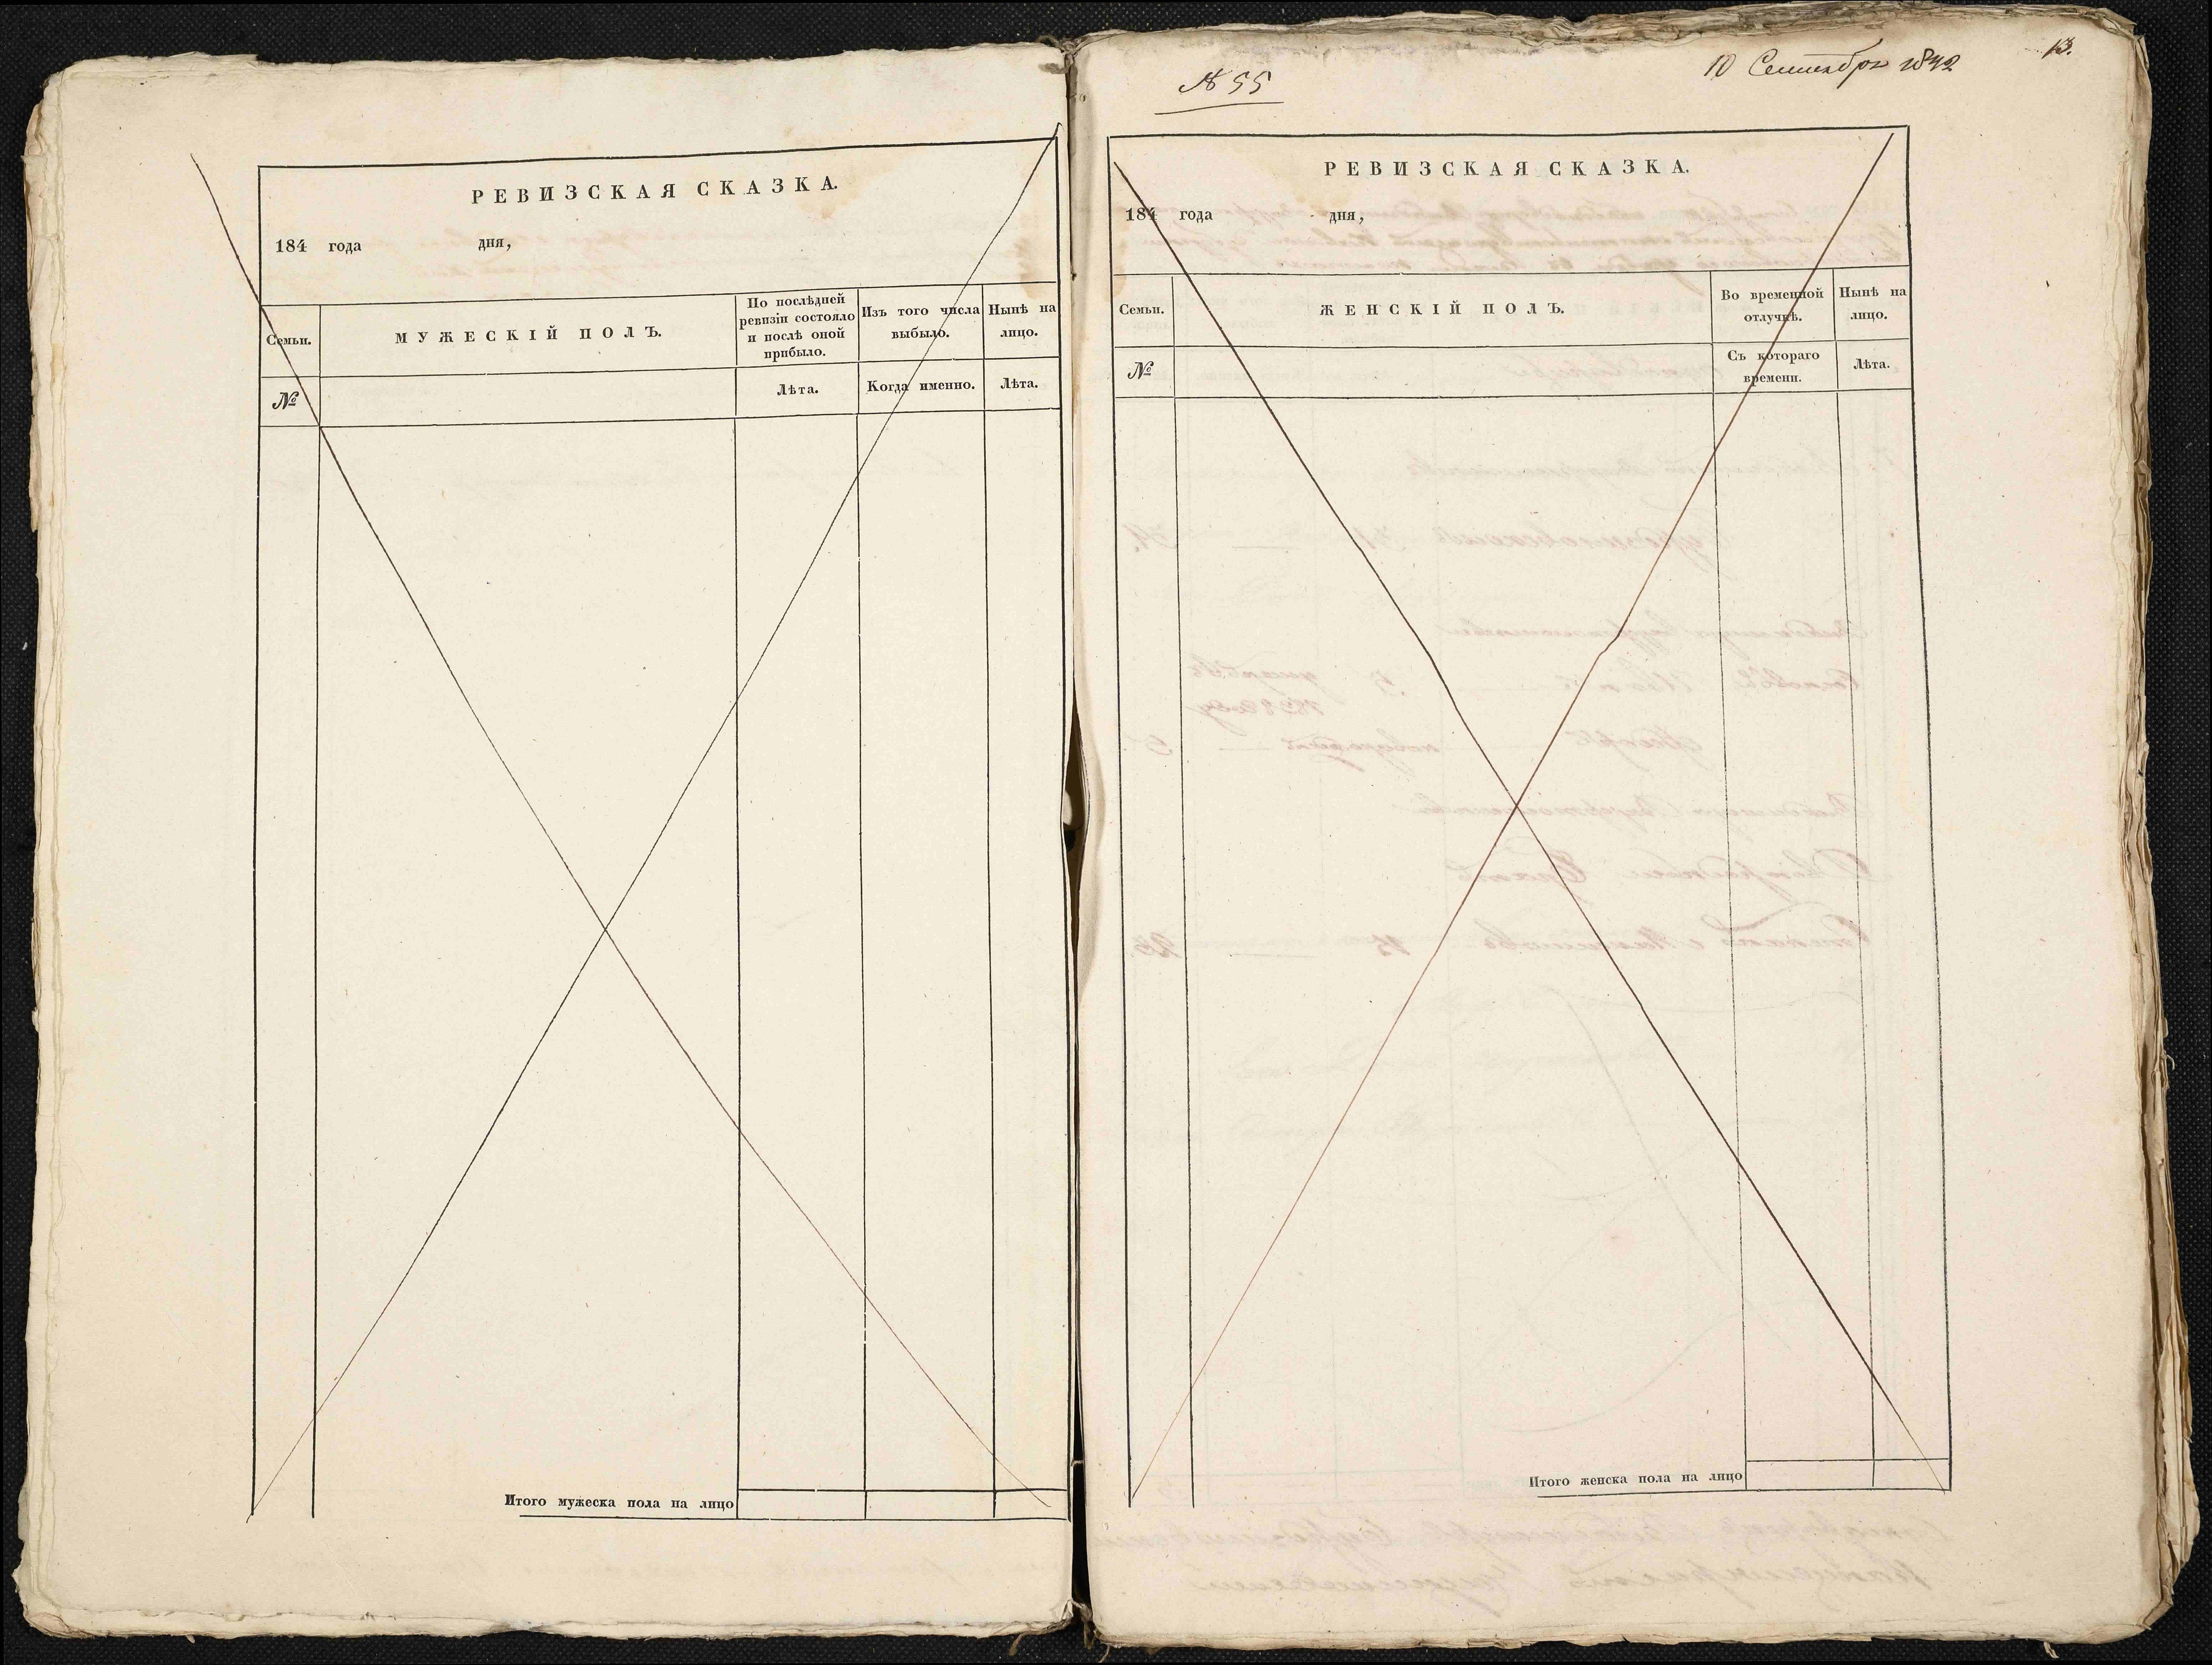 РЕВИЗСКАЯ СКАЗКА.
184 года дня,
Семьи.
МУЖЕСКІЙ ПОЛЪ.
По послѣдней
ревизіи состояло
и послѣ оной
прибыло.
Изъ того числа
выбыло.
Нынѣ на
лицо.
№
Лѣта.
Когда именно.
Лѣта.
Итого мужеска пола на лицо
№ 55
10 Сентября 1842
13.
РЕВИЗСКАЯ СКАЗКА.
184 года дня,
Семьи.
ЖЕНСКІЙ ПОЛЪ.
Во временной
отлучкѣ.
Нынѣ на
лицо.
№
Съ котораго
времени.
Лѣта.
Итого женска пола на лицо